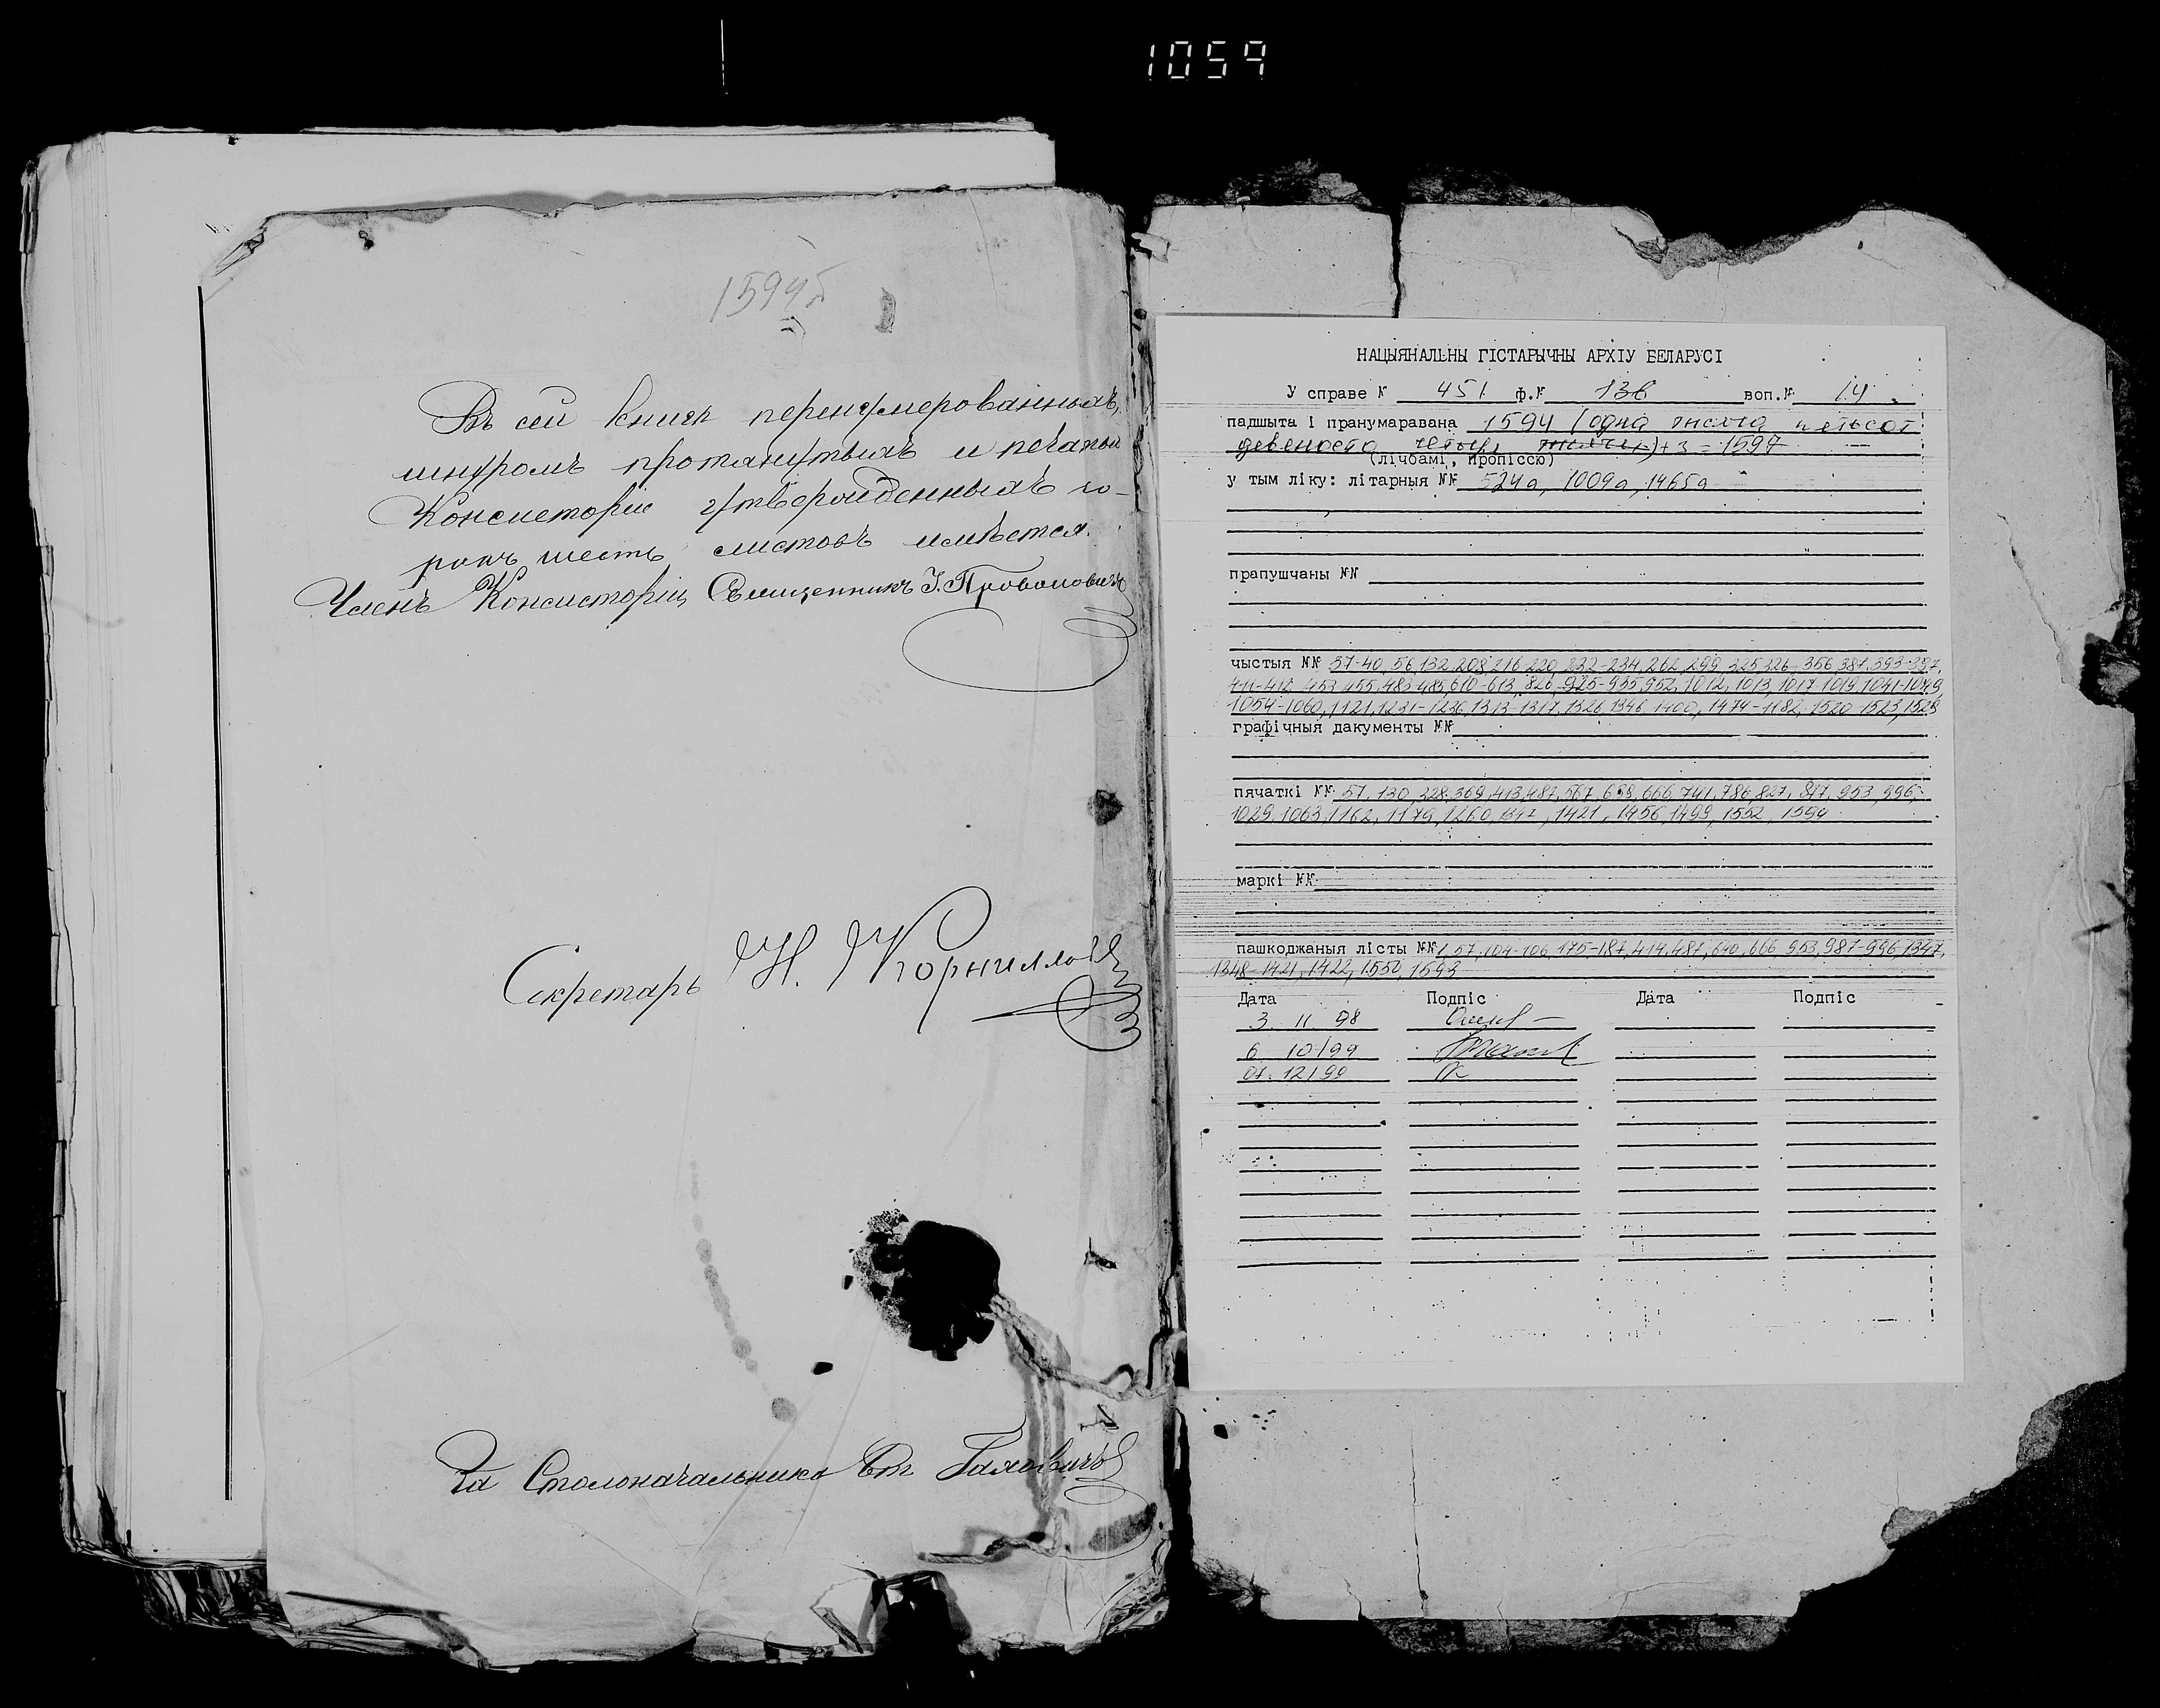 1059
1594б
Въ сей книгѣ перенумерованныхъ,
шнуромъ протянутыхъ и печатью
Консисторіи утвержденныхъ со-
рокъ шесть листовъ имѣется.
Членъ Консисторіи, Священникъ І.
Секретарь Н. Корниллов
За Столоначальника
НАЦЫЯНАЛЬНЫ ГІСТАРЫЧНЫ АРХІУ БЕЛАРУСІ
У справе № 451 ф.№ 136 воп.№ 14
падшыта і пранумаравана 1594 (одна тысяча пятьсот
девеносто четыре тысячи) + 3 = 1597
(лічбамі, пропіссю)
у тым ліку: літарныя №№ 524а, 1009а, 1465а
прапушчаны №№
чыстыя №№ 37-40, 56, 132, 208, 216, 220, 232-234, 262, 299, 325, 326, 356, 387, 393-397,
411-412, 453, 455, 483, 485, 610-613, 826, 925-935, 952, 1012, 1013, 1017, 1019, 1041-1049,
1054-1060, 1121, 1231-1236, 1313-1317, 1326, 1346, 1400, 1474-1182, 1520-1523, 1529
графічныя дакументы №№
пячаткі №№ 57, 130, 228, 369, 413, 487, 567, 639, 666, 741, 786, 827, 877, 953, 996,
1029, 1063, 1162, 1179, 1260, 1347, 1421, 1456, 1499, 1552, 1594
маркі №№
пашкоджаныя лісты №№ 1, 57, 104-106, 175-187, 414, 487, 640, 666, 953, 987-996, 1347,
1348-1421, 1422, 1550, 1593
Дата Подпіс Дата Подпіс
3. 11. 98
6 10/99
07. 12/99